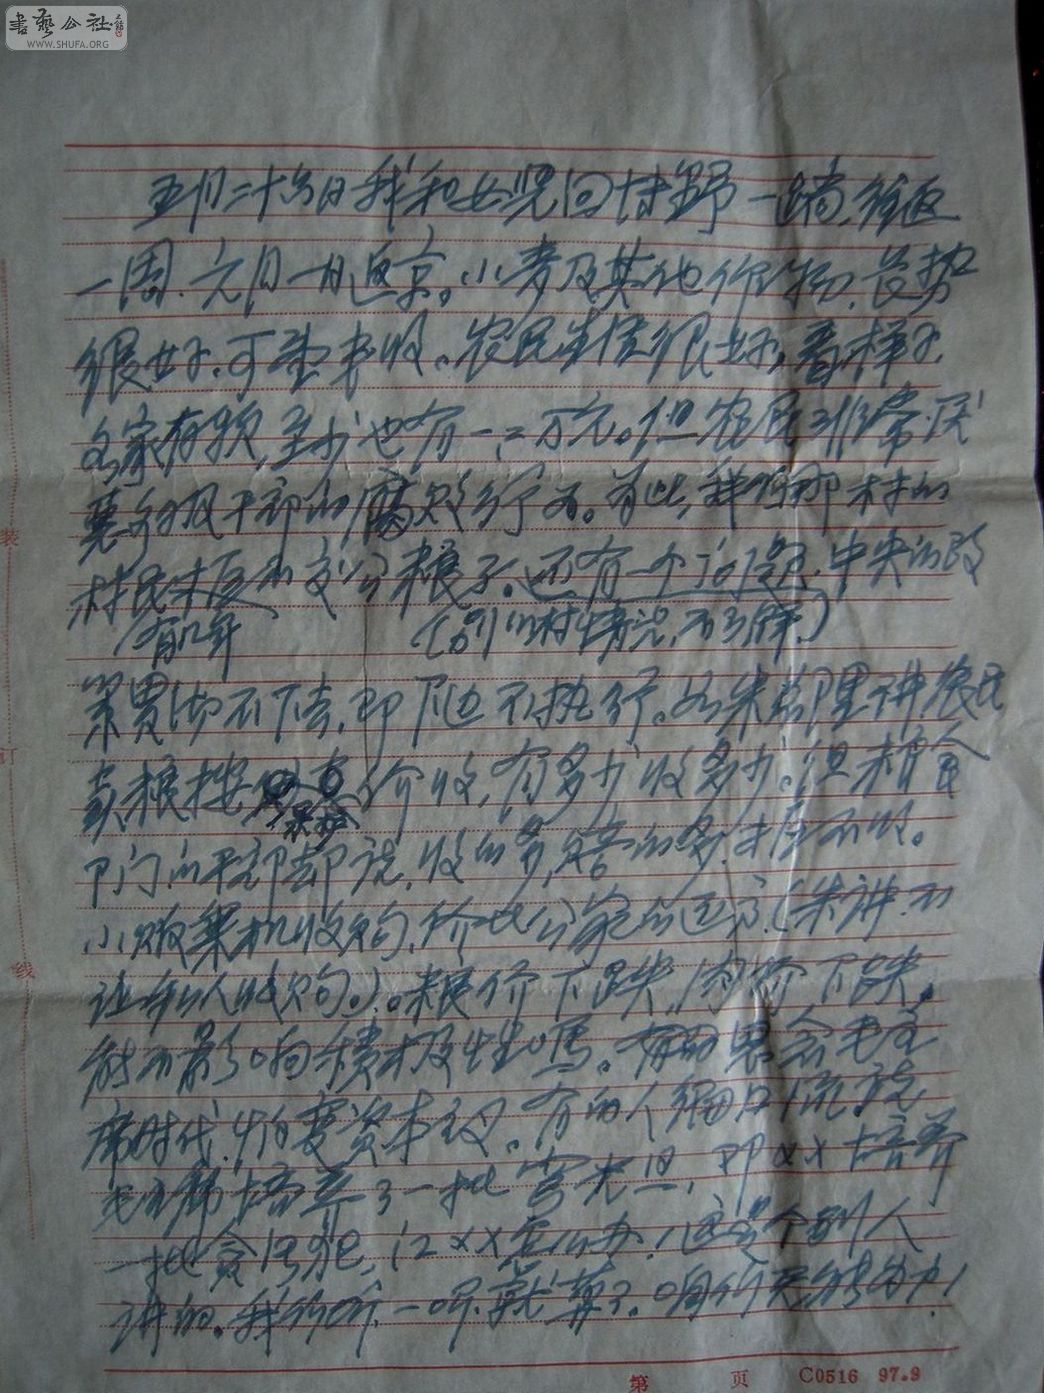 書藝公社
WWW.SHUFA.ORG
五月二十 日我和女儿回博野一趟,往返
一周、六月一日返京。小麦及其他作物,长势
很好,可望丰收。农民生活很好,看样子,
家有款,至少也有一、二万元。但农民非常厌
恶各级干部的腐败行为。为此,我们那村的
村民 不交公粮了。还有一个问题,中央的政
(有几年
(别的村情况,不了解)
策贯彻不下去,即下边不执行。如朱总理讲,农民
卖粮按 保护 价收,有多少收多少。但粮食
部门的干部却说,收的多,赔的多, 不收。
小贩乘机收购,价比公家的还 (朱讲,不
让私人收购)。粮价下跌,肉价下跌,
能不影响积极性吗。有的思念毛主
席时代,怕变资本主义。有的人编口流,说
毛主席培养了一批穷光旦,邓××培养
一批贪污犯,江××怎么办,这是个别人
讲的。我们听一听就算了。咱们无能为力!
装
订
线
第 页 C0516 97.9